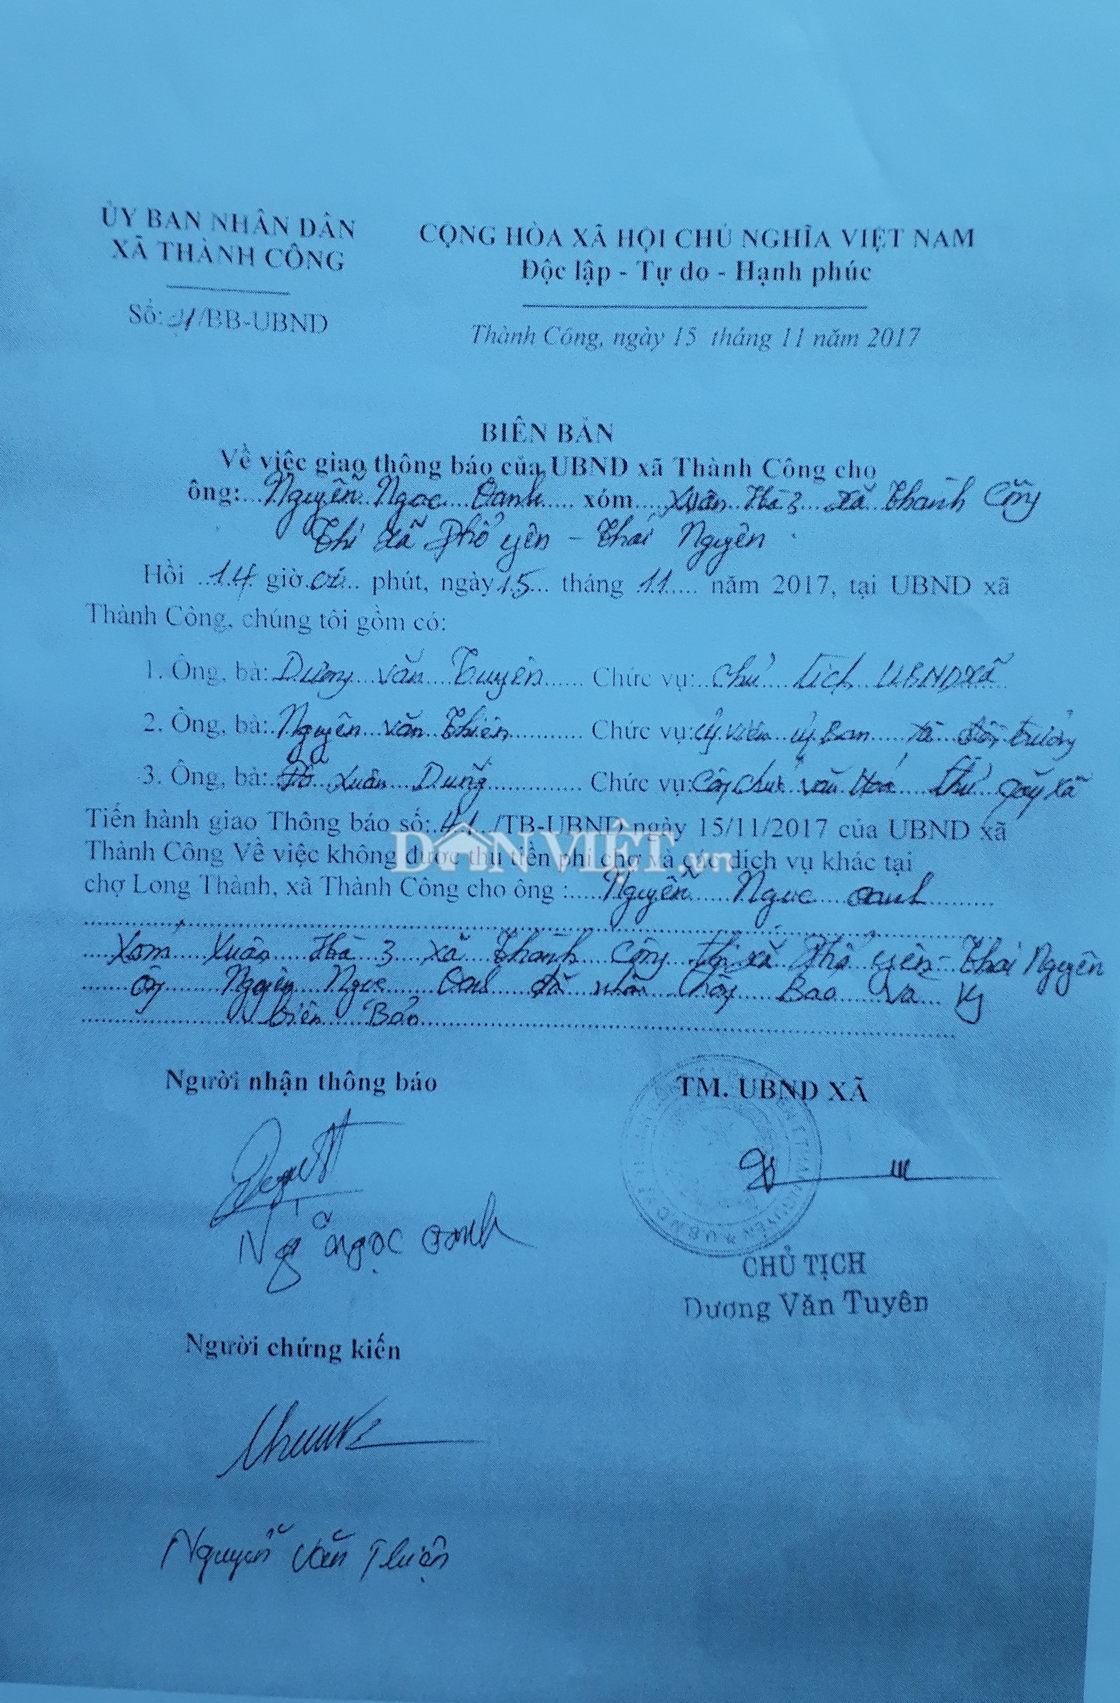 ỦY BAN NHÂN DÂN
XÃ THÀNH CÔNG
Số: /BB-UBND
CỘNG HÒA XÃ HỘI CHỦ NGHĨA VIỆT NAM
Độc lập - Tự do - Hạnh phúc
Thành Công, ngày 15 tháng 11 năm 2017
BIÊN BẢN
Về việc giao thông báo của UBND xã Thành Công cho
ông: Nguyễn Ngọc Oanh xóm Xuân Hà 3 xã Thành Công
Thị xã Phổ yên - Thái Nguyên
Hồi 14 giờ 00 phút, ngày 15 tháng 11 năm 2017, tại UBND xã
Thành Công, chúng tôi gồm có:
1. Ông, bà: Dương văn Tuyên Chức vụ: Chủ tịch UBND xã
2. Ông, bà: Nguyễn văn Chức vụ: ủy viên ủy Ban
3. Ông, bà: Xuân Dũng Chức vụ: Công chức văn hóa xã
Tiến hành giao Thông báo số: /TB-UBND ngày 15/11/2017 của UBND xã
Thành Công Về việc không được thu tiền phí chợ và các dịch vụ khác tại
chợ Long Thành, xã Thành Công cho ông : Nguyễn Ngọc oanh
DÂN VIỆT.vn
Xóm Xuân Hà 3 xã Thành Công thị xã Phổ yên - Thái Nguyên
Ông Nguyễn Ngọc Oanh đã nhận thông Báo và ký
biên Bản
Người nhận thông báo
Ng ngọc oanh
TM. UBND XÃ
CHỦ TỊCH
Dương Văn Tuyên
Người chứng kiến
Nguyễn Văn